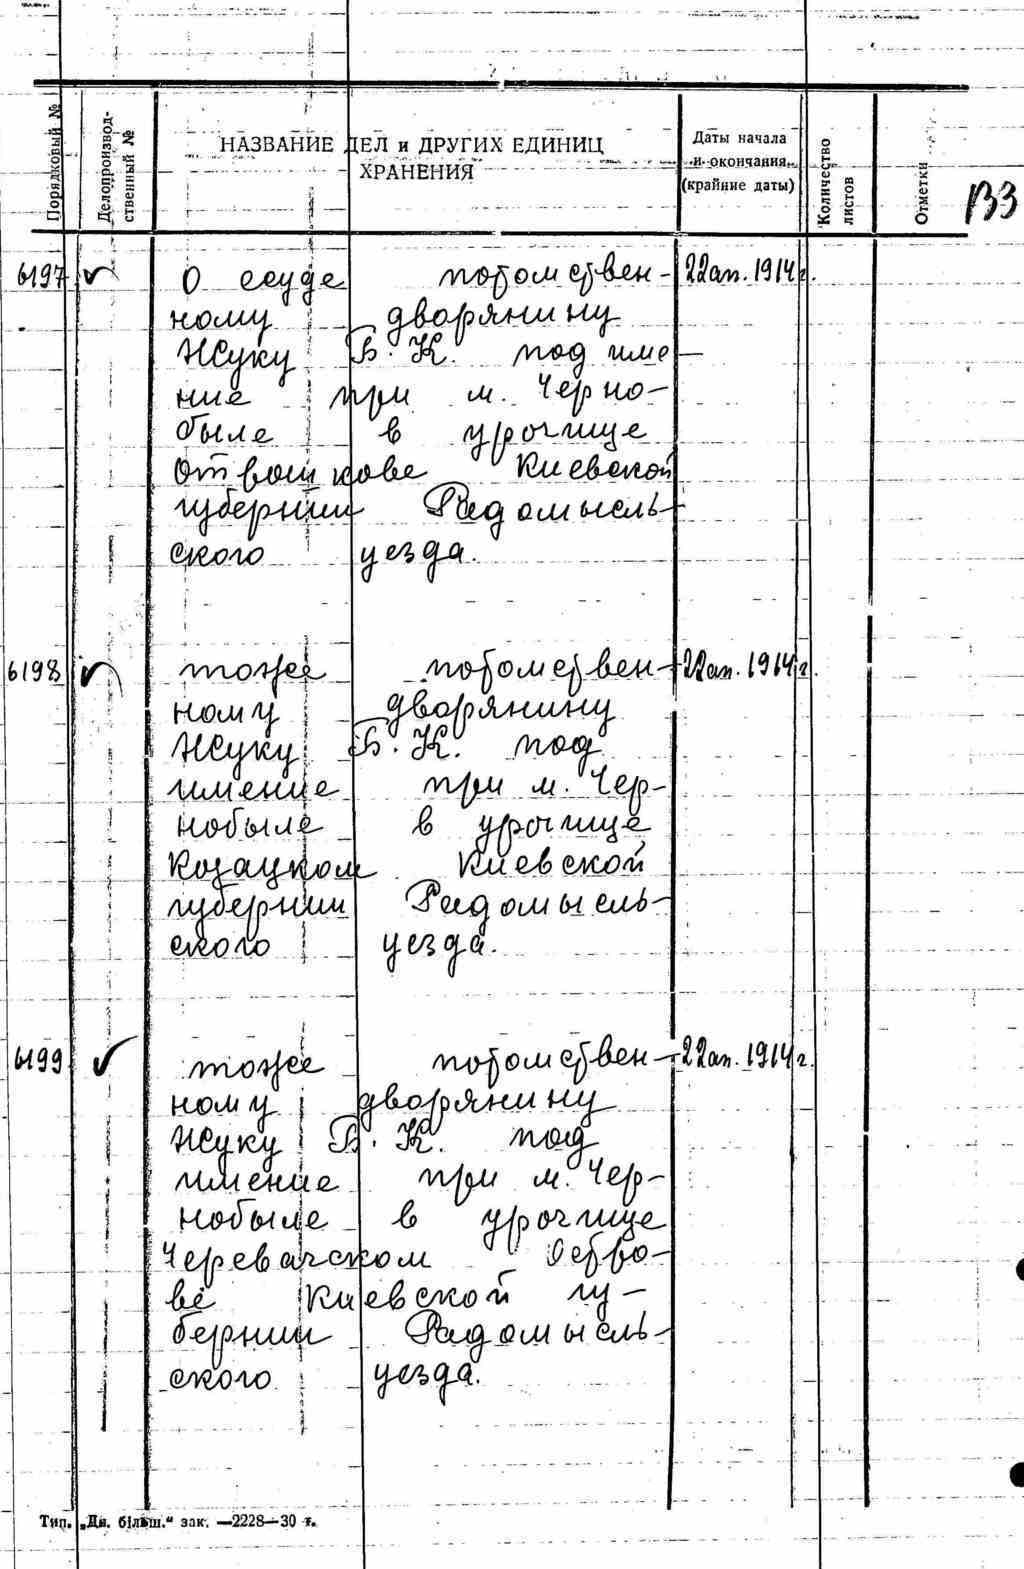 Порядковый №
Делопроизвод-
ственный №
НАЗВАНИЕ ДЕЛ и ДРУГИХ ЕДИНИЦ
ХРАНЕНИЯ
Даты начала
и окончания
(крайние даты)
Количество
листов
Отметки
133
6197 О ссуде потомствен- 22 ап. 1914 г.
ному дворянину
Жуку Б. К. под име-
ние при м. Черно-
быле в урочище
Отвошкове Киевской
губернии Радомысль-
ского уезда.
6198 тоже потомствен- 22 ап. 1914 г.
ному дворянину
Жуку Б. К. под
имение при м. Чер-
нобыле в урочище
Козацком Киевской
губернии Радомысль-
ского уезда.
6199 тоже потомствен- 22 ап. 1914 г.
ному дворянину
Жуку Б. К. под
имение при м. Чер-
нобыле в урочище
Черевачском Остро-
ве Киевской гу-
бернии Радомысль-
ского уезда.
Тип. „Дн. більш.“ зак. —2228—30 т.